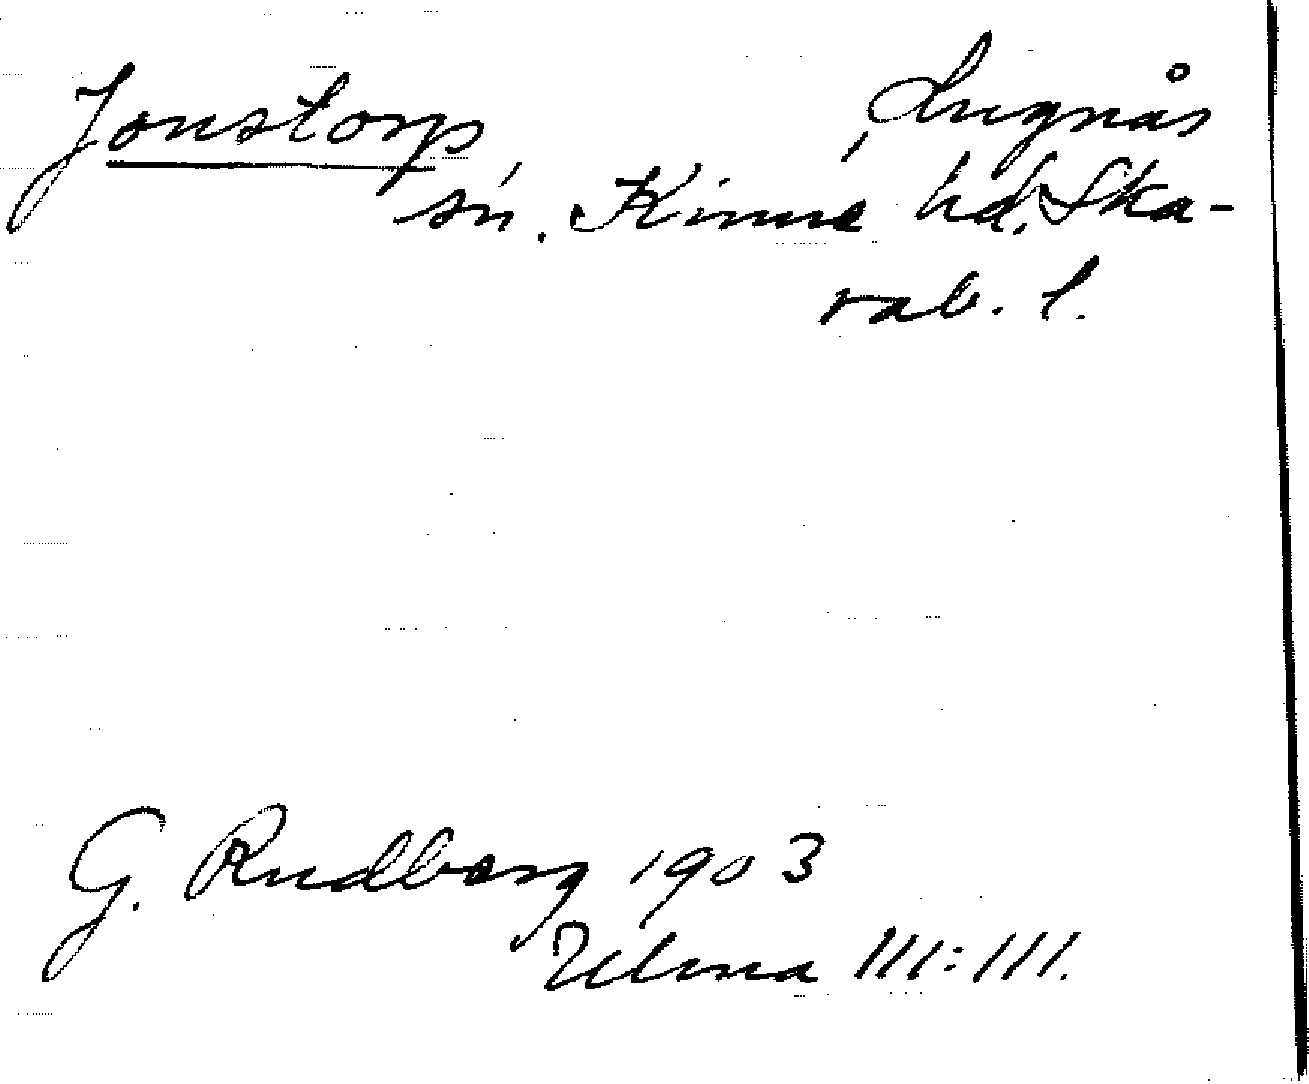 Jonstorp Lugnås
sn. Kinne hd, Ska-
rab. l.
G. Rudberg 1903
Ulma 111:111.